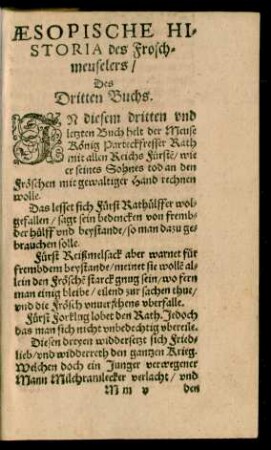 ÆSOPISCHE HI-
STORIA des Frosch-
meuselers/
Des
Dritten Buchs.
IN diesem dritten vnd
letzten Buch helt der Meuse
König Parteckfresser Rath
mit allen Reichs Fürstē/ wie
er seines Sohnes tod an den
Fröschen mit gewaltiger Hand rechnen
wolle.
Das lesset sich Fürst Rathülffer wol-
gefallen/ sagt sein bedencken von fremb-
der hülff vnd beystande/ so man dazu ge-
brauchen solle.
Fürst Reißmelsack aber warnet für
frembdem beystande/ meinet sie wollē al-
lein den Fröschē starck gnug sein/ wo fern
man einig bleibe/ eilend zur sachen thue/
vnd die Frösch vnuersehens vberfalle.
Fürst Forklug lobet den Rath. Jedoch
das man sich nicht vnbedechtig vbereile.
Diesen dreyen widdersetzt sich Frieds-
lieb/ vnd widderreth den gantzen Krieg.
Welchen doch ein Junger verwegener
Mann Milchramlecker verlacht/ vnd
M m v den